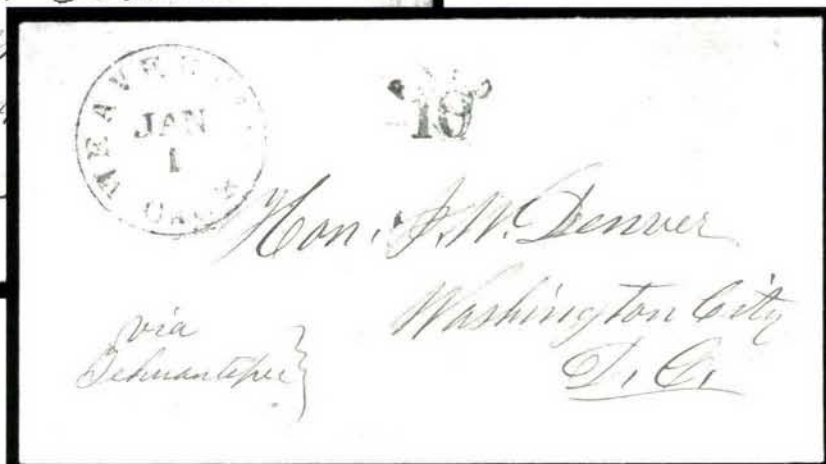 WEAVERV
JAN
1
CAL
10
Hon. J. W. Denver
Washington City
D. C.
via
Tehuantepec